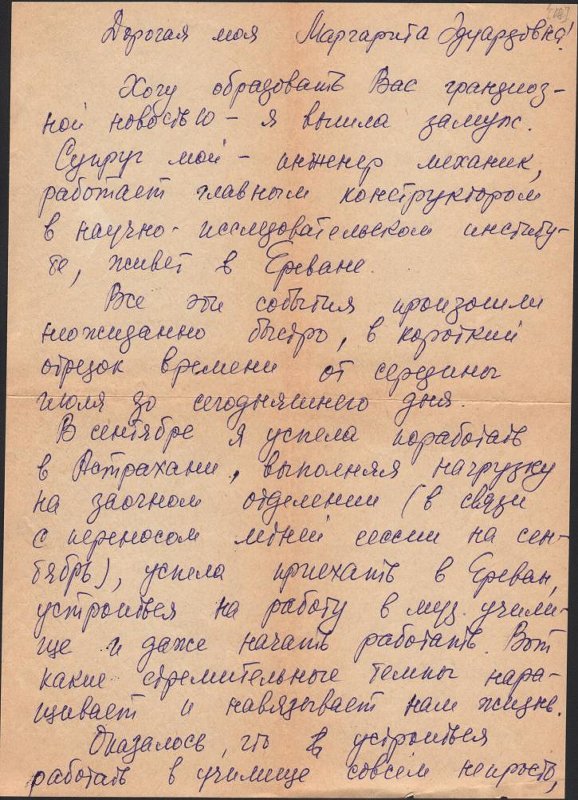 Дорогая моя Маргарита Эдуардовна!
Хочу обрадовать Вас грандиоз-
ной новостью – я вышла замуж.
Супруг мой – инженер механик,
работает главным конструктором
в научно-исследовательском институ-
те, живёт в Ереване.
Все эти события произошли
неожиданно быстро, в короткий
отрезок времени от середины
июля до сегодняшнего дня.
В сентябре я успела поработать
в Астрахани, выполняя нагрузку
на заочном отделении (в связи
с переносом летней сессии на сен-
тябрь), успела приехать в Ереван,
устроиться на работу в муз. учили-
ще и даже начать работать. Вот
какие стремительные темпы нара-
щивает и навязывает нам жизнь.
Оказалось, что устроиться
работать в училище совсем непросто,